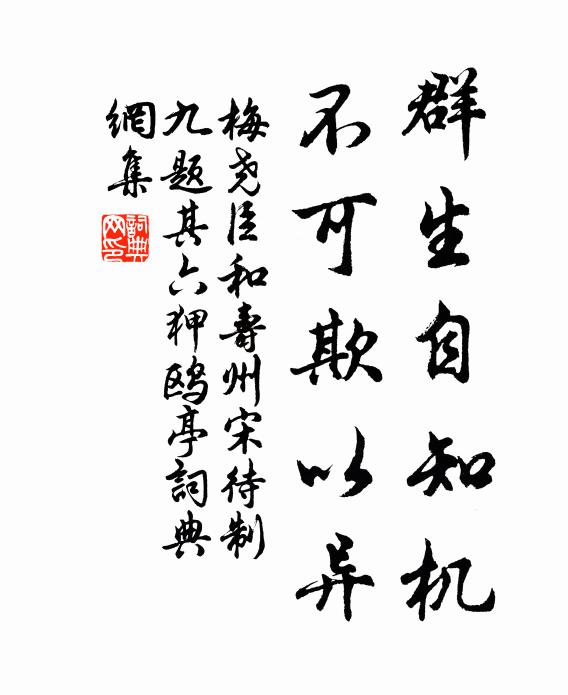 群生自知机
不可欺以异
梅尧臣和寿州宋待制
九题其六狎鸥亭词典
網集
詞典
网印